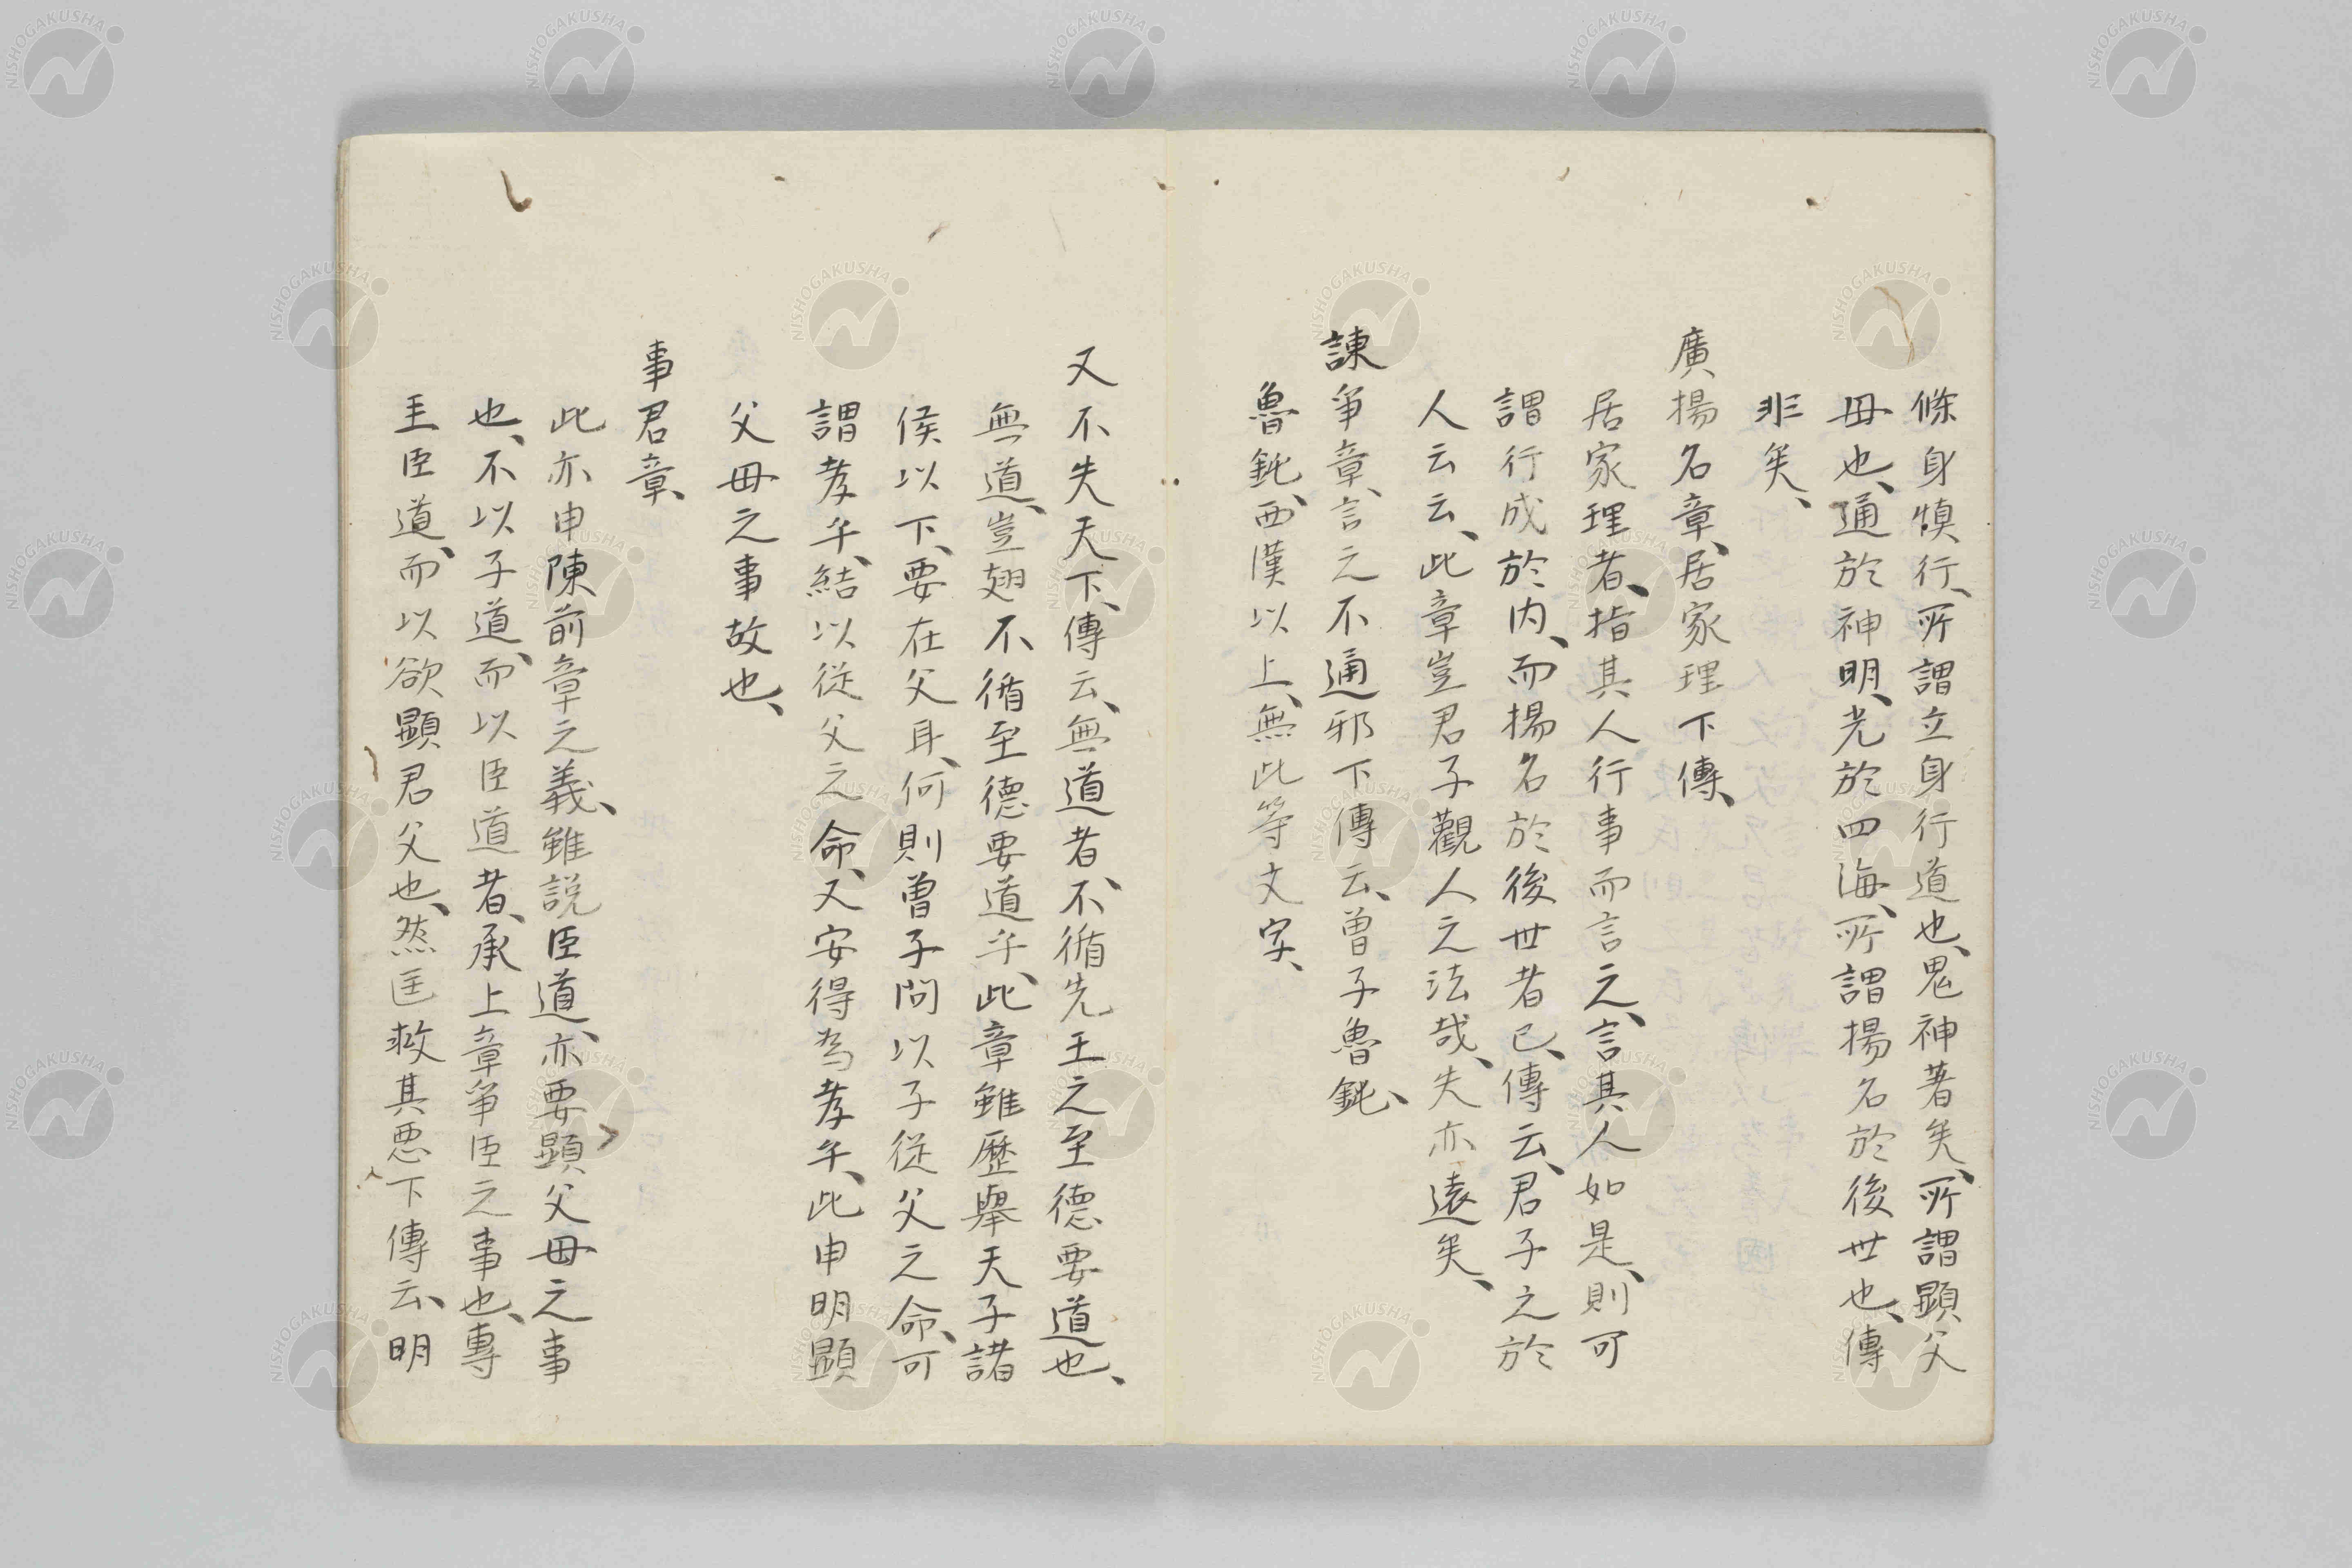 脩身慎行、所謂立身行道也、鬼神著矣、所謂顕父
毋也、通於神明、光於四海、所謂揚名於後世也、傳
非矣、
廣揚名章、居家理下傳、
居家理者、指其人行事而言之、言其人如是、則可
謂行成於内、而揚名於後世者已、傳云、君子之於
人云云、此章豈君子觀人之法哉、失亦遠矣、
諌爭章、言之不通邪下傳云、曽子魯鈍、
魯鈍、西漢以上、無此等文字、
又不失天下、傳云、無道者、不循先王之至德要道也、
無道、豈翅不循至德要道乎、此章雖歷舉天子諸
侯以下、要在父耳、何則曽子問以子從父之命、可
謂孝乎、結以從父之命、又安得為孝乎、此申明顕
父毋之事故也、
事君章、
此亦申陳前章之義、雖説臣道、亦要顕父毋之事
也、不以子道、而以臣道者、承上章爭臣之事也、專
主臣道、而以欲顕君父也、然匡救其悪下傳云、明